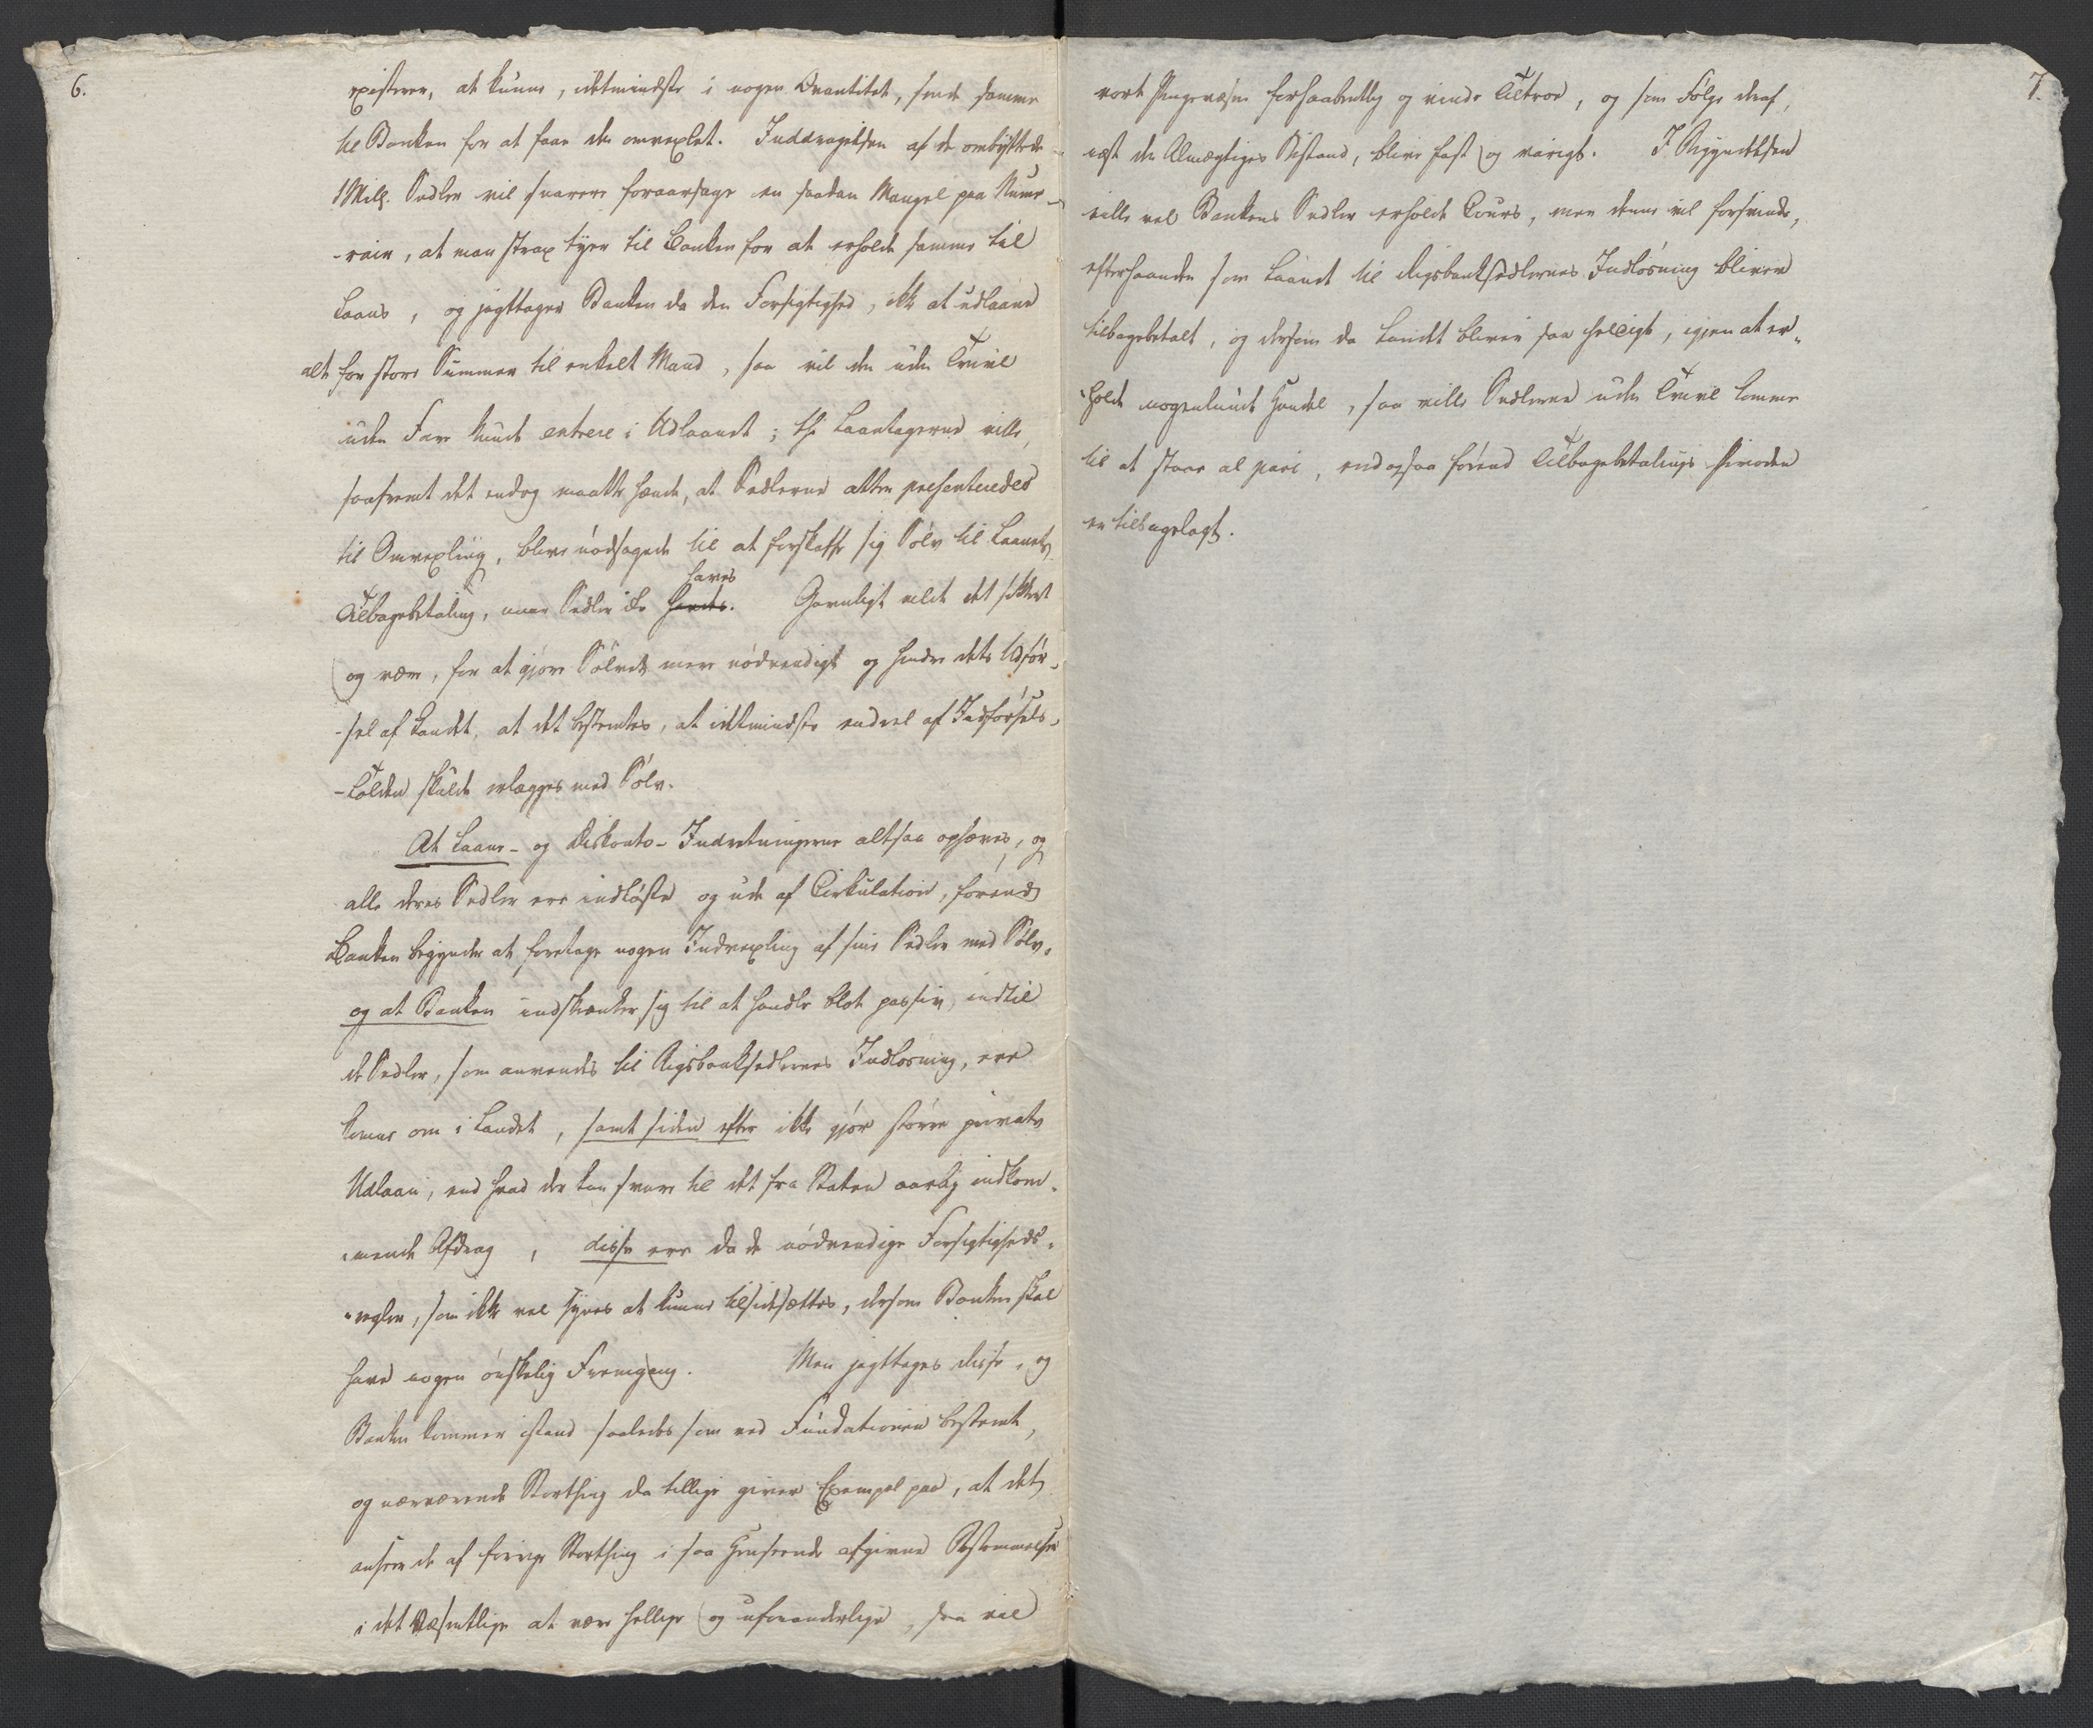 6.
existerer, at kunne, idetmindste i nogen Qvantitet, sende samme
til Banken for at faae den omvexlet. Inddragelsen af de ombyttede
1 Mill. Sedler vil snarere foraarsage en saadan Mangel paa Nume-
-rair, at man strax tyer til Banken for at erholde samme til
Laans, og jagttager Banken da den Forsigtighed, ikke at udlaane
alt for store Summer til enkelt Mand, saa vil den uden Tvivl
uden Fare kunde entrere i Udlaanet; thi Laantagerne ville,
saafremt det endog maatte hænde, at Sedlerne atter presenteredes
til Omvexling, blive nødsagede til at forskaffe sig Sølv til Laanets
Tilbagebetaling, naar Sedler ikke haves. Gavnligt vilde det sikkert
og være, for at gjøre Sølvet mere nødvendigt og hindre dets Udfør-
-sel af Landet, at det bestemtes, at idetmindste endeel af Indførsels-
-Tolden skulde erlægges med Sølv.
At Laane- og Diskonto-Indretningerne altsaa ophæves, og
alle deres Sedler ere indløste og ude af Cirkulation, førend
Banken begynder at foretage nogen Indvexling af sine Sedler med Sølv,
og at Banken indskrænker sig til at handle blot passiv, indtil
de Sedler, som anvendes til Rigsbanksedlernes Indløsning, ere
komne om i Landet, samt siden efter ikke gjør større private
Udlaan, end hvad der kan svare til det fra Staten aarlig indkom-
-mende Afdrag, disse ere da de nødvendige Forsigtigheds-
-regler, som ikke vel synes at kunne tilsidesættes, dersom Banken skal
have nogen ønskelig Fremgang. Men jagttages disse, og
Banken kommer istand saaledes som ved Fundationen bestemt,
og nærværende Storthing da tillige giver Exempel paa, at det
anseer de af forrige Storthing i saa Henseende afgivne Bestemmelser
i det Væsentlige at være hellige og uforanderlige, saa vil
7.
vort Pengevæsen forhaabentlig og vinde Tiltroe, og som Følge deraf,
næst den Almægtiges Bistand, blive fast og varigt. I Begyndelsen
ville vel Bankens Sedler erholde Cours, men denne vil forsvinde,
efterhaanden som Laanet til Rigsbanksedlernes Indløsning bliver
tilbagebetalt, og dersom da Landet bliver saa heldigt, igjen at er-
-holde nogenlunde Handel, saa ville Sedlerne uden Tvivl komme
til at staae al pari, endogsaa førend Tilbagebetalings Perioden
er tilbagelagt.